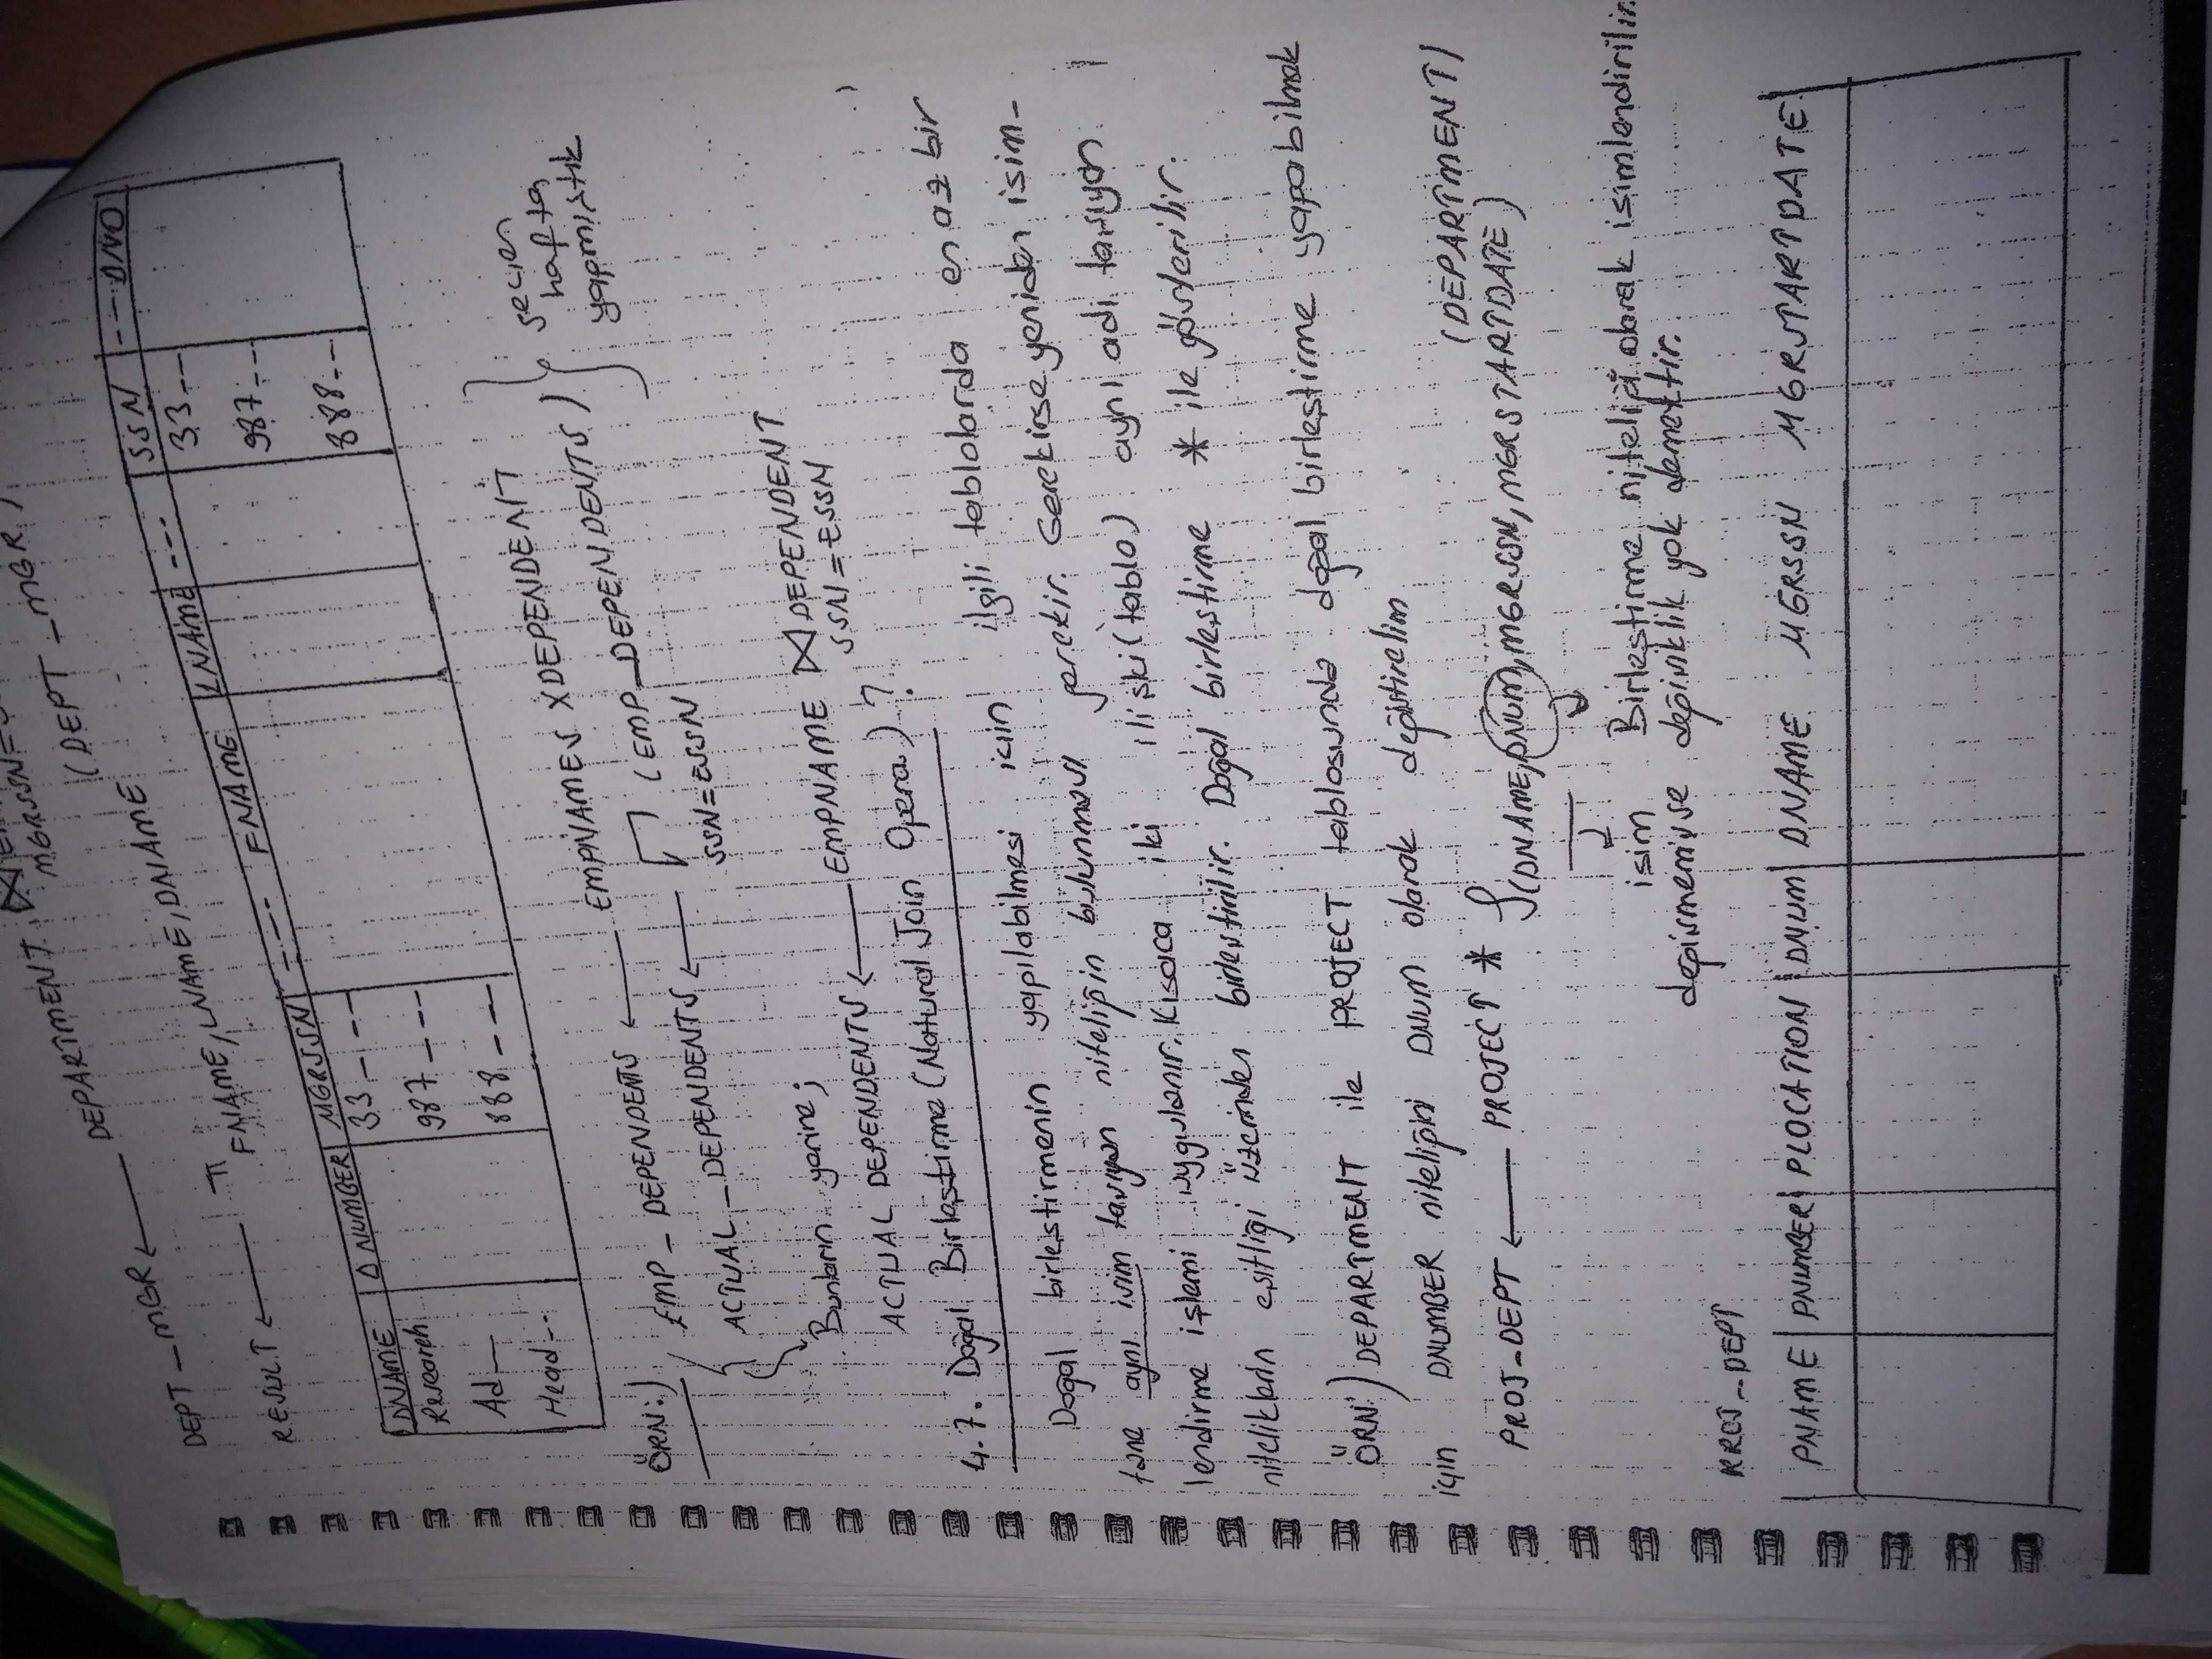 DEPT_MGR ← DEPARTMENT ⋈
MGRSSN=
RESULT ← π FNAME, LNAME, DNAME (DEPT_MGR)
DNAME | DNUMBER | MGRSSN | --- FNAME | LNAME | --- | SSN | --- DNO
Research 33---- 33---
Ad— 987---- 987---
Head-- 888---- 888---
ÖRN:) EMP_DEPENDENTS ← EMPNAMES X DEPENDENT
ACTUAL_DEPENDENTS ← σ SSN=ESSN (EMP_DEPENDENTS)
gecien hafta yapmıştık
Bunların yerine;
ACTUAL DEPENDENTS ← EMPNAME ⋈ DEPENDENT
SSN=ESSN
4.7. Doğal Birleştirme (Natural Join Opera.) ?
Doğal birleştirmenin yapılabilmesi için ilgili tablolarda en az bir
tane aynı isim taşıyan niteliğin bulunması gerekir. Gerekirse yeniden isim-
lendirme işlemi uygulanır. Kısaca iki ilişki (tablo) aynı adı taşıyan
niteliklerin eşitliği üzerinden birleştirilir. Doğal birleştirme * ile gösterilir.
ÖRN:) DEPARTMENT ile PROJECT tablosunda doğal birleştirme yapabilmek
için DNUMBER niteliğini DNUM olarak değiştirelim
PROJ_DEPT ← PROJECT * ρ(DNAME, DNUM, MGRSSN, MGRSTARTDATE) (DEPARTMENT)
isim Birleştirme niteliği olarak isimlendirilir.
değişmemişse değişiklik yok demektir.
RROJ_DEPT
PNAME | PNUMBER | PLOCATION | DNUM | DNAME MGRSSN MGRSTARTDATE